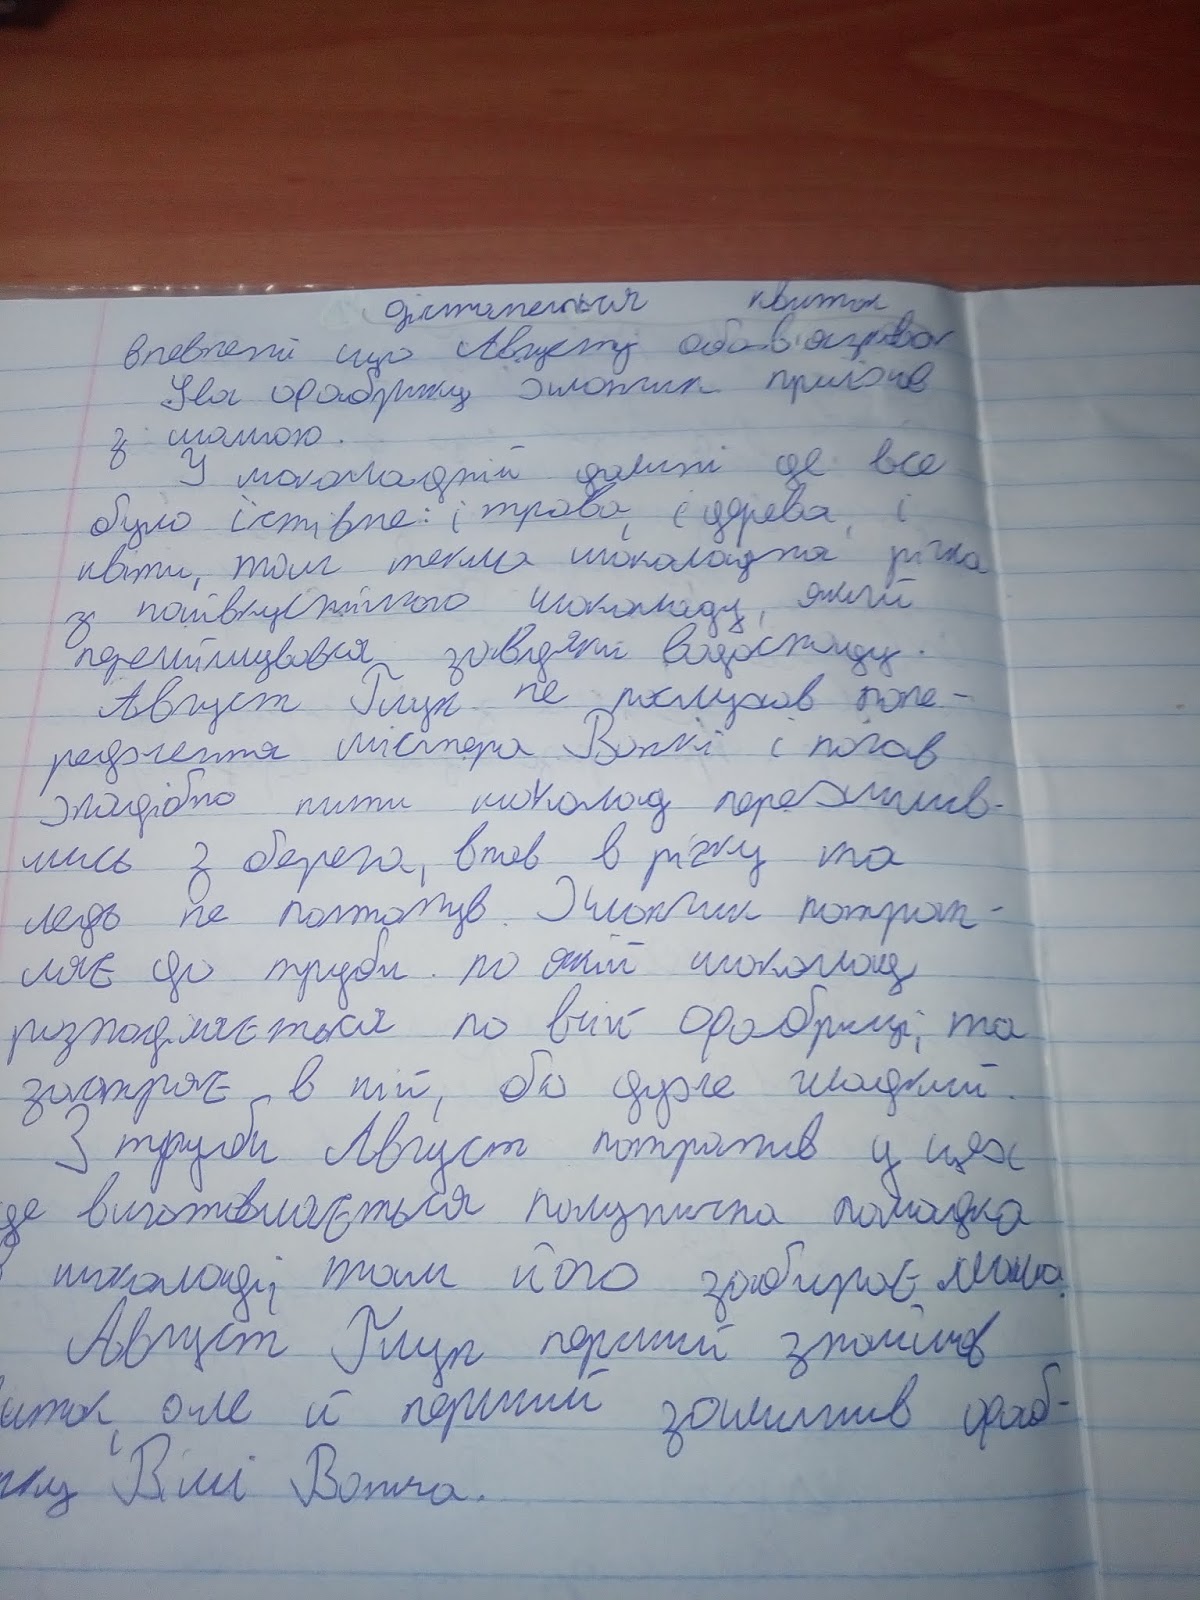 дістанеться квиток
впевнені що Августу обов'язково
На фабрику хлопчик приїхав
з мамою.
У шоколадній долині де все
було їстівне: і трава, і дерева, і
квіти, там текла шоколадна річка
з найвкуснішого шоколаду, який
перемішувався завдяки водоспаду.
Август Глуп не послухав попе-
редження містера Вонкі і почав
жадібно пити шоколад перехилив-
шись з берега, впав в річку та
ледь не потонув. Хлопчик потрап-
ляє до труби по якій шоколад
розподіляється по всій фабриці, та
застряє в ній, бо дуже гладкий.
З труби Август потрапив у цех
де виготовляється полунична помадка
в шоколаді, там його забирає мама.
Август Глуп перший знайшов
квиток, але й перший залишив фаб-
рику Вілі Вонка.